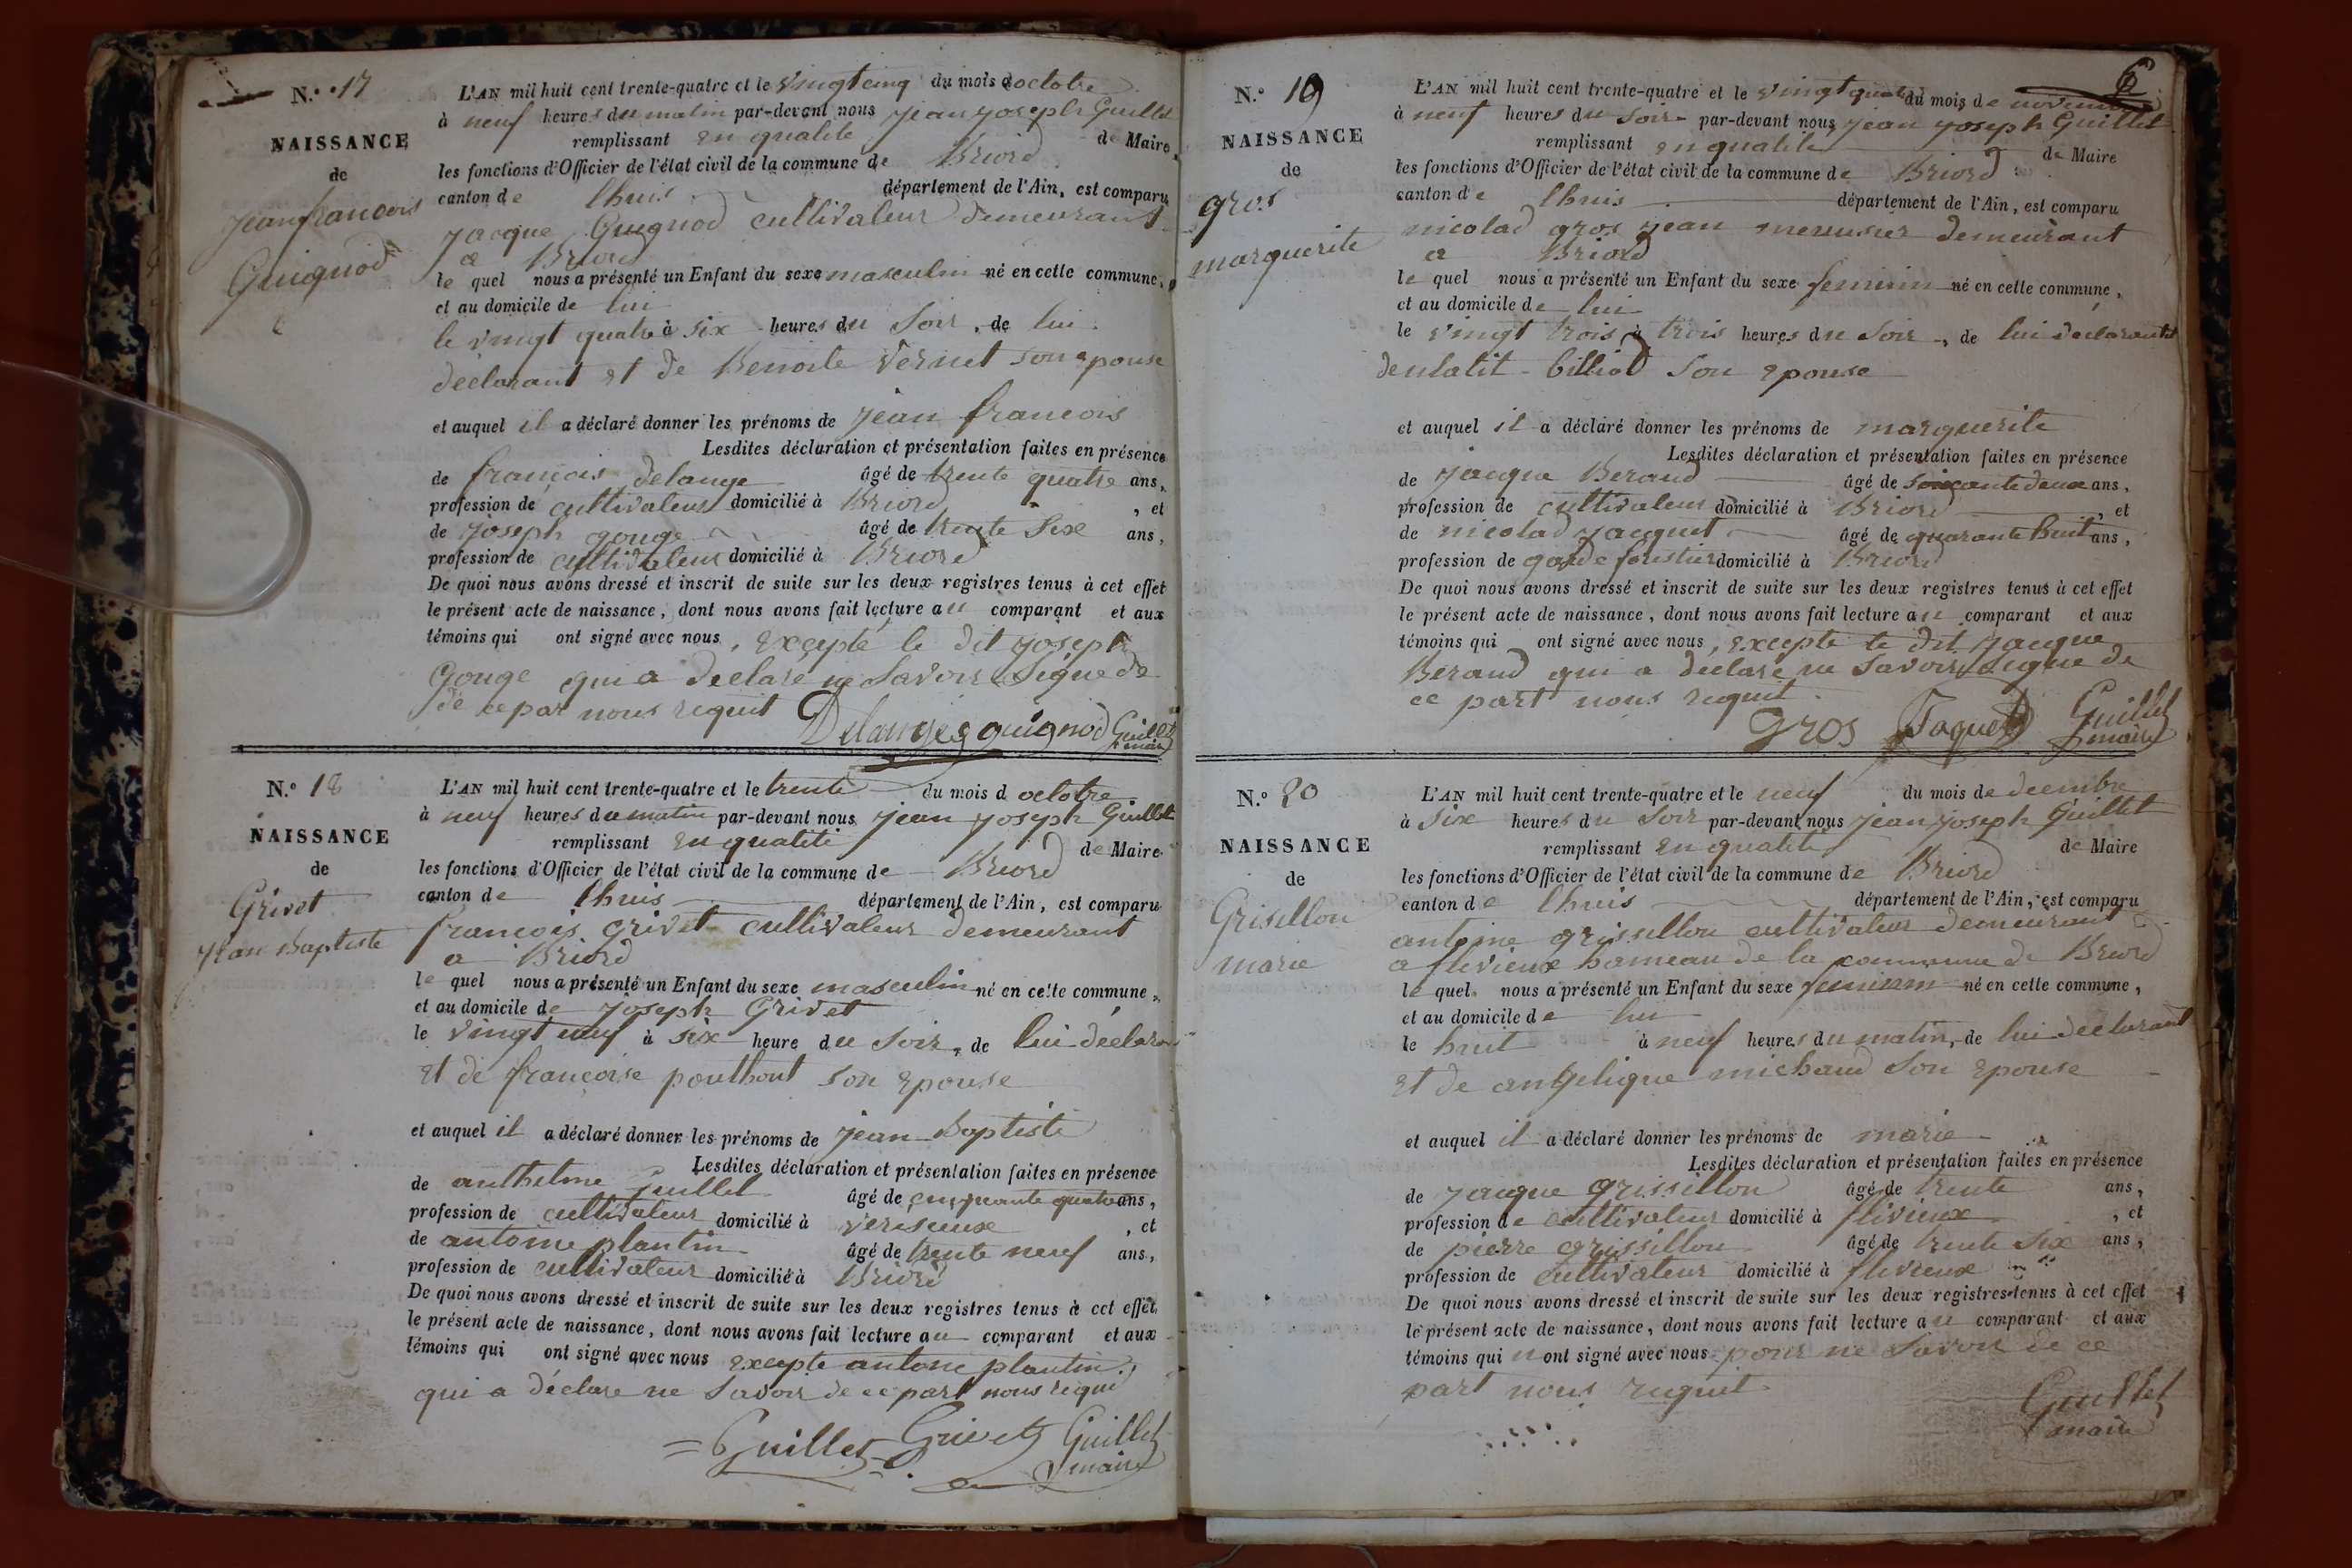 N.° 17
NAISSANCE
de
jean francois
Guignod
L'AN mil huit cent trente-quatre et le vingt cinq du mois d octobre
à neuf heures du matin par-devant nous jean joseph Guillet
remplissant en qualité de Maire
les fonctions d'Officier de l'état civil de la commune de Briord
canton de lhuis département de l'Ain, est comparu
jacque Guignod cultivateur demeurant
a Briord
le quel nous a présenté un Enfant du sexe masculin né en cette commune,
et au domicile de lui
le vingt quatre à six heures du soir, de lui
déclarant et de Benoite vernet son epouse
et auquel il a déclaré donner les prénoms de jean francois
Lesdites déclaration et présentation faites en présence
de françois delange âgé de trente quatre ans,
profession de cultivateur domicilié à Briord, et
de joseph gouge âgé de trente six ans,
profession de cultivateur domicilié à Briord
De quoi nous avons dressé et inscrit de suite sur les deux registres tenus à cet effet
le présent acte de naissance, dont nous avons fait lecture au comparant et aux
témoins qui ont signé avec nous, excepté le dit joseph
gouge qui a declaré ne savoir signe de
de ce par nous requit
Delange guignod Guillet
maire
N.° 18
NAISSANCE
de
Grivet
jean Baptiste
L'AN mil huit cent trente-quatre et le trente du mois d octobre
à neuf heures du matin par-devant nous jean joseph Guillet
remplissant en qualité de Maire
les fonctions d'Officier de l'état civil de la commune de Briord
canton de lhuis département de l'Ain, est comparu
francois grivet cultivateur demeurant
a Briord
le quel nous a présenté un Enfant du sexe masculin né en cette commune,
et au domicile de joseph Grivet
le vingt neuf à six heure du soir, de lui déclarant
et de françoise pouthout son epouse
et auquel il a déclaré donner les prénoms de jean Baptiste
Lesdites déclaration et présentation faites en présence
de anthelme Guillet âgé de cinquante quatre ans,
profession de cultivateur domicilié à verisieux, et
de antoine plantin âgé de trente neuf ans,
profession de cultivateur domicilié à Briord
De quoi nous avons dressé et inscrit de suite sur les deux registres tenus à cet effet
le présent acte de naissance, dont nous avons fait lecture au comparant et aux
témoins qui ont signé avec nous excepte antoine plantin
qui a déclare ne savoir de ce part nous requi
Guillet Grivet Guillet
maire
6
N.° 19
NAISSANCE
de
gros
marguerite
L'AN mil huit cent trente-quatre et le vingt quatre du mois de novembre
à neuf heures du soir par-devant nous jean joseph Guillet
remplissant en qualité de Maire
les fonctions d'Officier de l'état civil de la commune de Briord
canton de lhuis département de l'Ain, est comparu
nicolad gros jean menusier demeurant
a Briord
le quel nous a présenté un Enfant du sexe feminin né en cette commune,
et au domicile de lui
le vingt trois à trois heures du soir, de lui déclarant et
billiod son epouse
et auquel il a déclaré donner les prénoms de marguerite
Lesdites déclaration et présentation faites en présence
de jacque Beraud âgé de soixante deux ans,
profession de cultivateur domicilié à Briord, et
de nicolad jacquet âgé de quarante huit ans,
profession de garde forestier domicilié à Briord
De quoi nous avons dressé et inscrit de suite sur les deux registres tenus à cet effet
le présent acte de naissance, dont nous avons fait lecture au comparant et aux
témoins qui ont signé avec nous, excepte le dit jacque
Beraud qui a declaré ne savoir signe de
ce part nous requit
gros Jaquet Guillet
maire
N.° 20
NAISSANCE
de
Grisellon
marie
L'AN mil huit cent trente-quatre et le neuf du mois de decembre
à six heures du soir par-devant nous jean joseph Guillet
remplissant en qualité de Maire
les fonctions d'Officier de l'état civil de la commune de Briord
canton de lhuis département de l'Ain, est comparu
antoine grissillon cultivateur demeurant
a flevieux hameau de la commune de Briord
le quel nous a présenté un Enfant du sexe feminin né en cette commune,
et au domicile de lui
le huit à neuf heures du matin, de lui declarant
et de angelique michaud son epouse
et auquel il a déclaré donner les prénoms de marie
Lesdites déclaration et présentation faites en présence
de jacque grissillon âgé de trente ans,
profession de cultivateur domicilié à flivieux, et
de pierre grissillon âgé de trente six ans,
profession de cultivateur domicilié à flivieux
De quoi nous avons dressé et inscrit de suite sur les deux registres tenus à cet effet
le présent acte de naissance, dont nous avons fait lecture au comparant et aux
témoins qui n ont signé avec nous pour ne savoir de ce
part nous requit
Guillet
maire